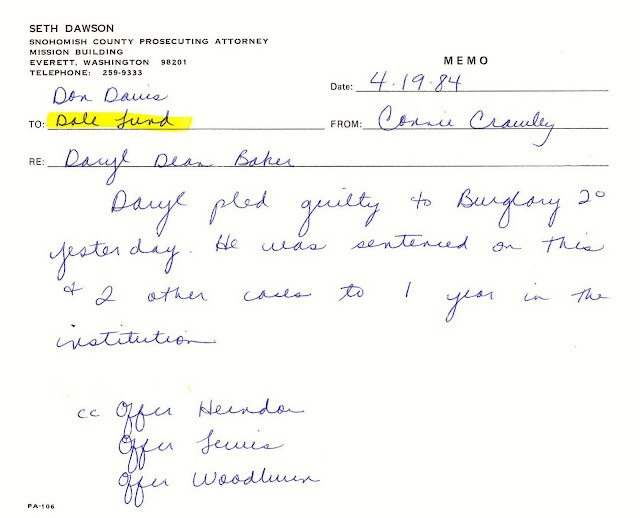 SETH DAWSON
SNOHOMISH COUNTY PROSECUTING ATTORNEY
MISSION BUILDING
EVERETT, WASHINGTON 98201
TELEPHONE: 259-9333
MEMO
Date: 4-19-84
Don Davis
TO: Dale Fund
FROM: Connie Crawley
RE: Daryl Dean Baker
Daryl pled guilty to Burglary 2°
yesterday. He was sentenced on this
& 2 other cases to 1 year in the
institution
cc Offcr Herndon
Offcr Lewis
Offcr
PA-106